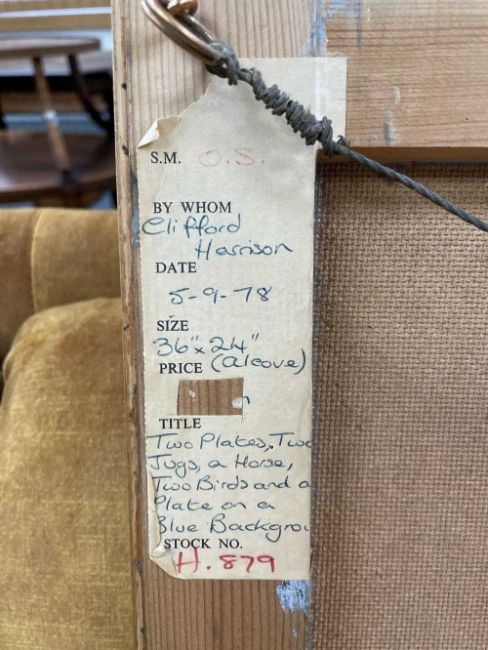 S.M. O.S.
BY WHOM
Clifford
Harrison
DATE
5-9-78
SIZE
36"x24"
PRICE (alcove)
TITLE
Two Plates, Two
Jugs, a Horse,
Two Birds and a
Plate on a
Blue Backgrou
STOCK NO.
H.879